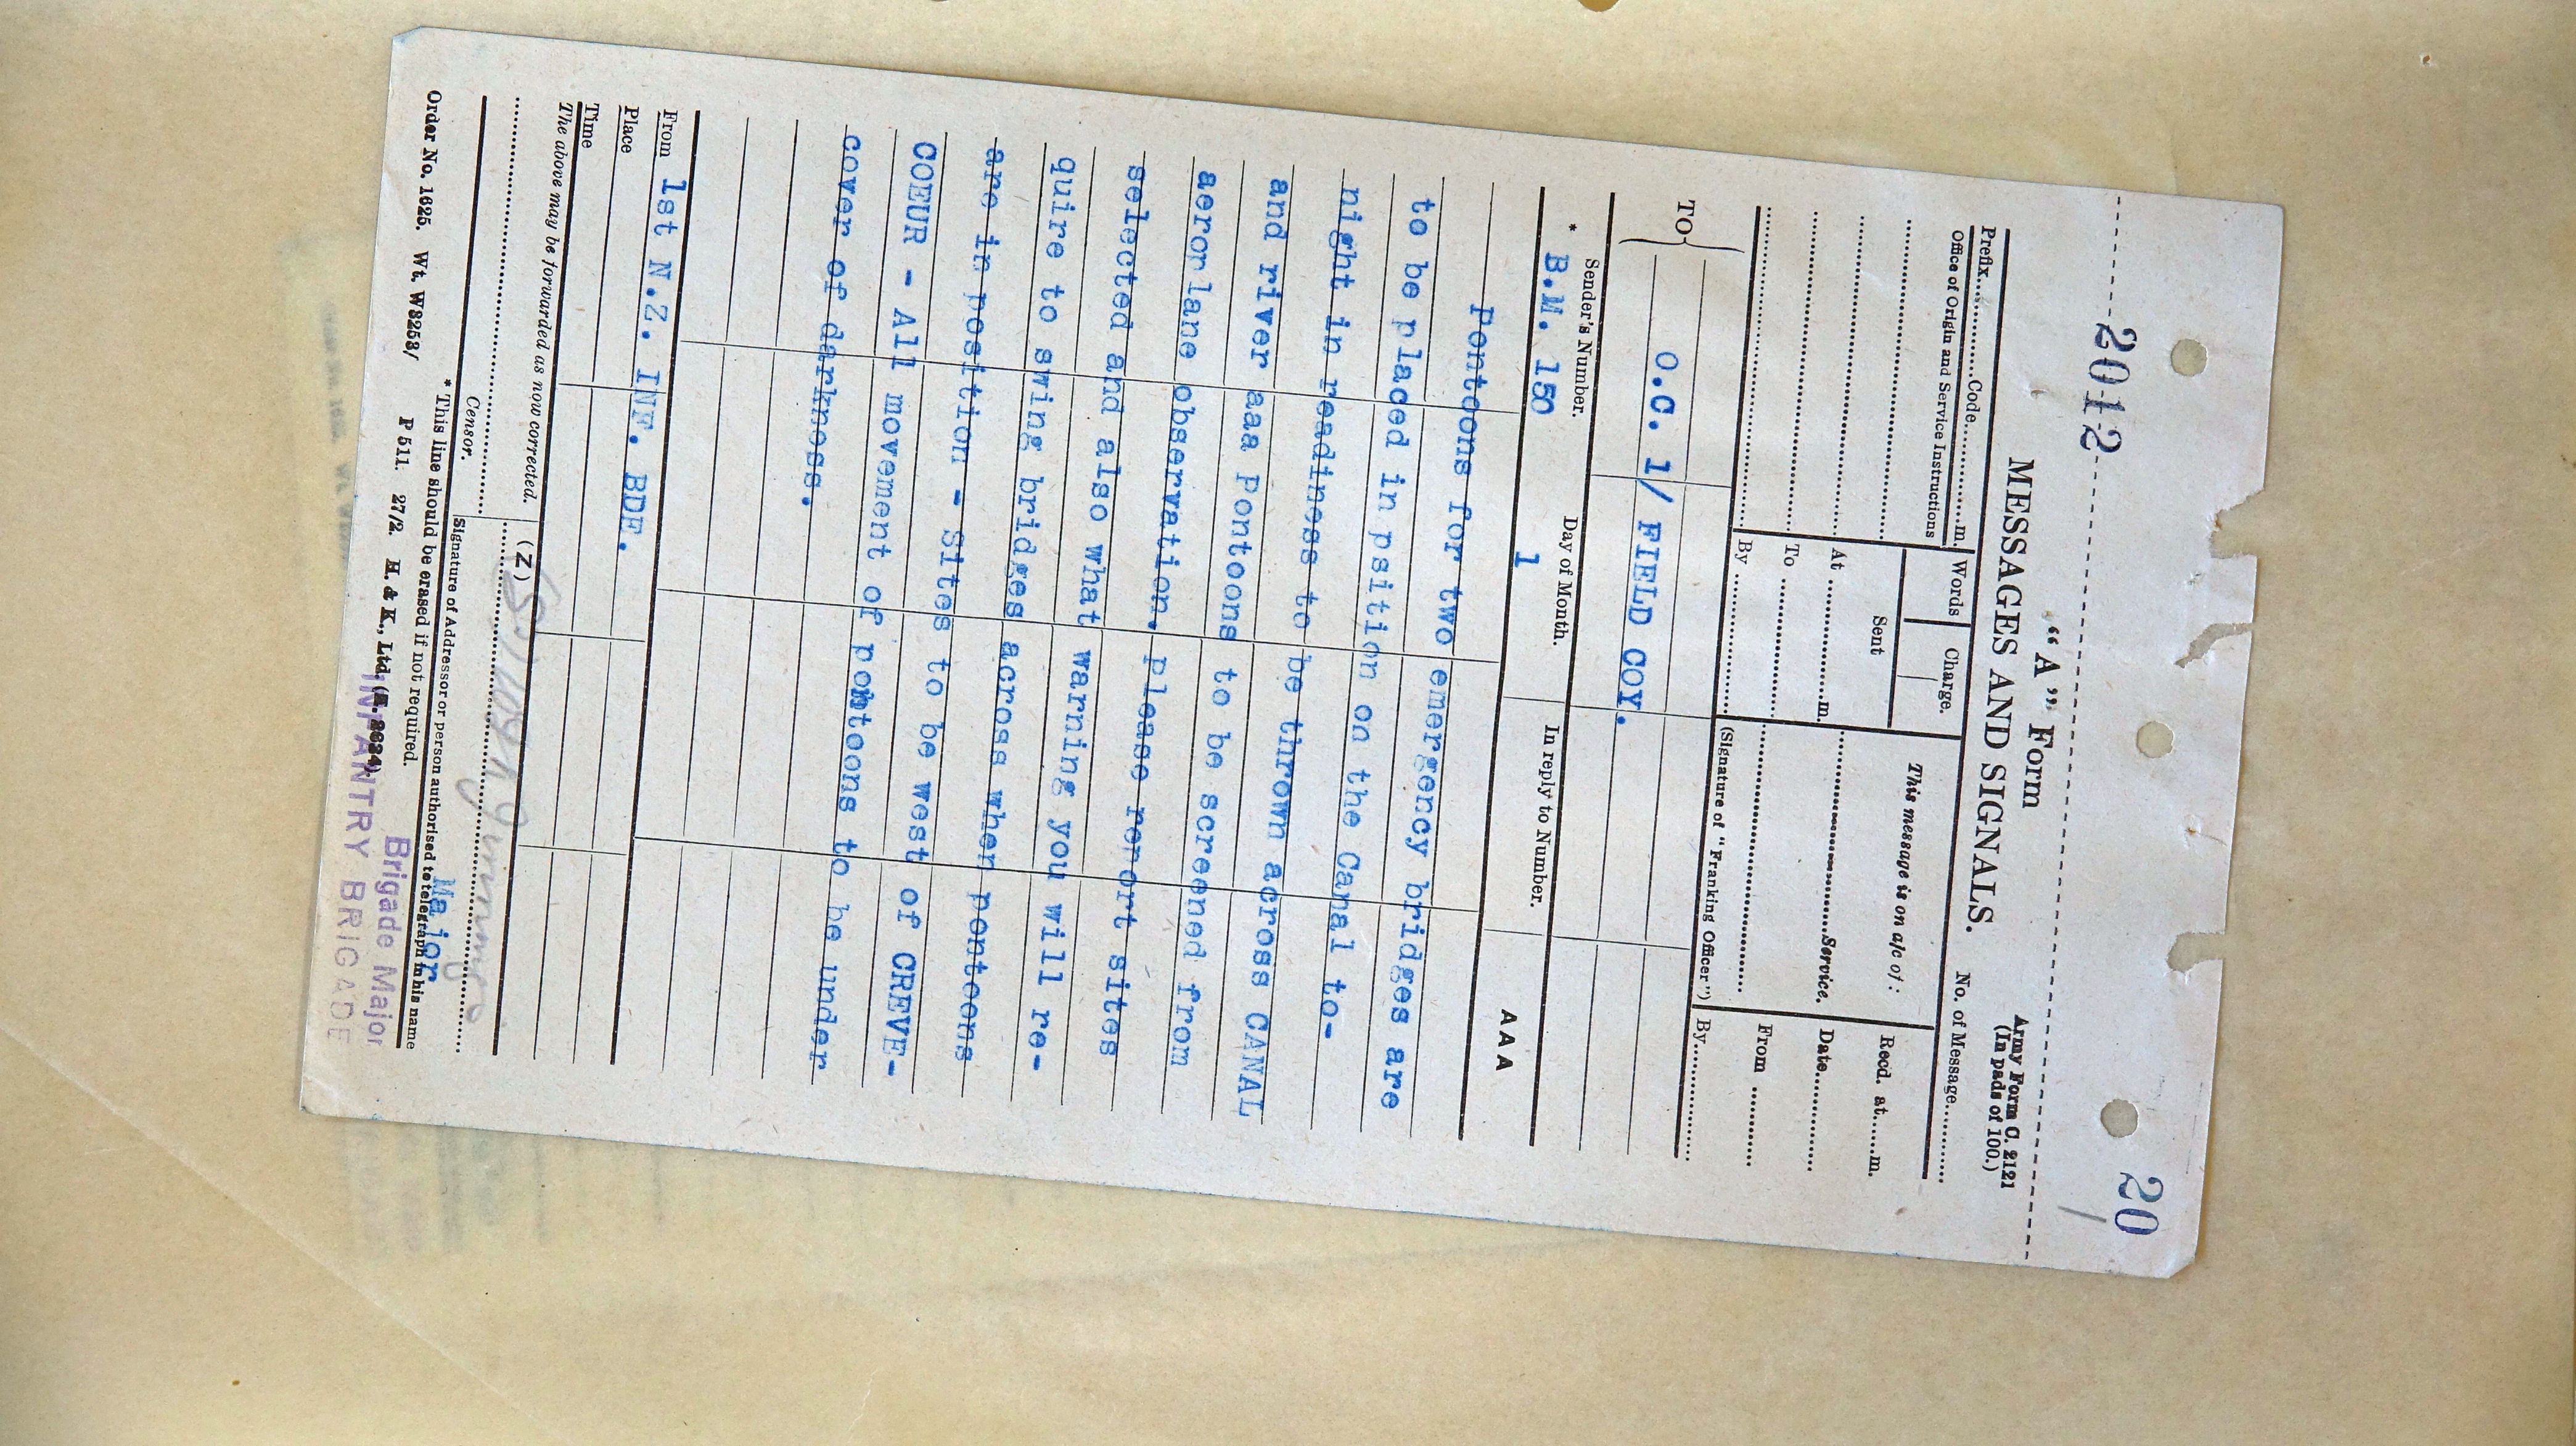 2012
20
"A" Form
Army Form C. 2121
(In pads of 100.)
MESSAGES AND SIGNALS.
No. of Message..........
Prefix..........Code..........m.
Office of Origin and Service Instructions
Words
Charge.
This message is on a/c of:
Recd. at......m.
Sent
At ..........m.
..........Service.
Date..........
To ..........
From ..........
By ..........
(Signature of "Franking Officer")
By..........
TO
O.C. 1/ FIELD COY.
Sender's Number.
Day of Month.
In reply to Number.
AAA
* B.M. 150
1
Pontoons for two emergency bridges are
to be placed in psition on the Canal to-
night in readiness to be thrown across CANAL
and river aaa Pontoons to be screened from
aerorlane observation. please report sites
selected and also what warning you will re-
quire to swing bridges across when pontoons
are in position - Sites to be west of CREVE-
COEUR - All movement of pontoons to be under
cover of darkness.
From 1st N.Z. INF. BDE.
Place
Time
The above may be forwarded as now corrected.
(Z)
Censor.
Signature of Addressor or person authorised to telegraph in his name
Major
* This line should be erased if not required.
Order No. 1625. Wt. W3253/ P 511. 27/2. H. & K., Ltd.
Brigade Major
INFANTRY BRIGADE